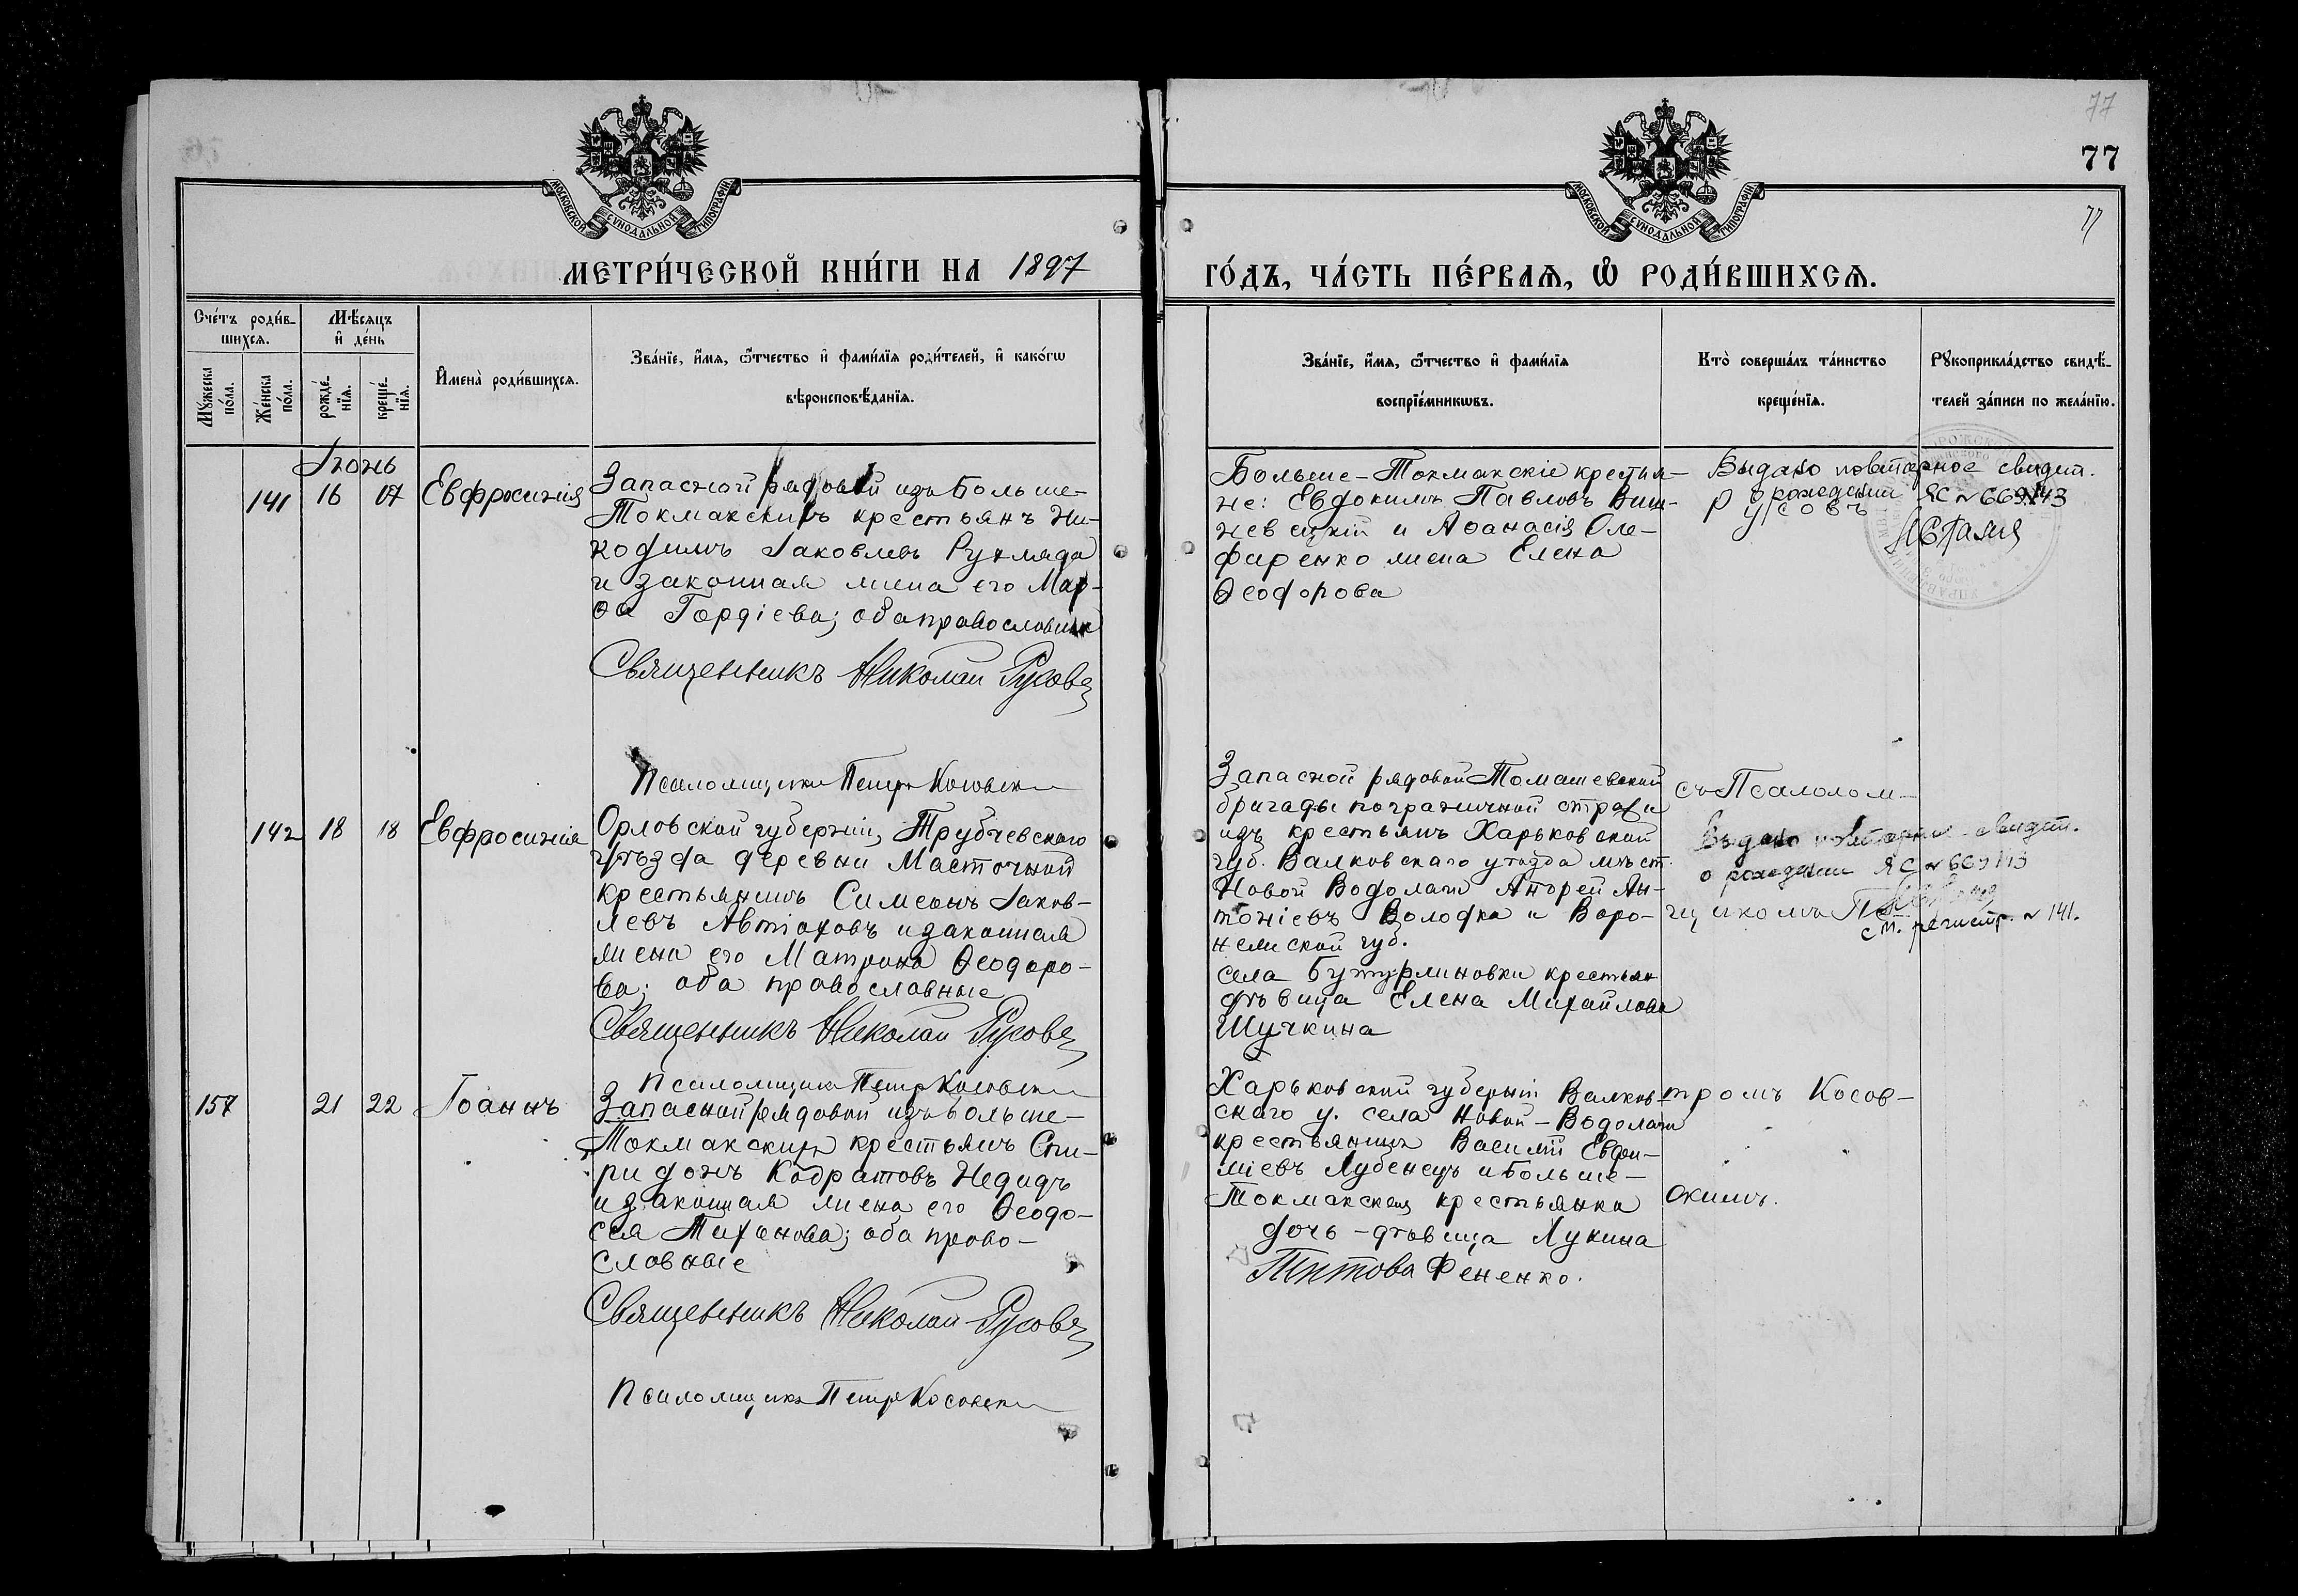 77
77
77
МОСКОВСКОЙ СУНОДАЛЬНОЙ ТИПОГРАФІИ
МОСКОВСКОЙ СУНОДАЛЬНОЙ ТИПОГРАФІИ
МЕТРИ́ЧЕСКОЙ КНИ́ГИ НА 1897
ГО́ДЪ, ЧА́СТЬ ПЕ́РВАѦ, Ѿ РОДИ́ВШИХСѦ.
Сче́тъ роди́в-
шихсѧ.
Мѣ́сѧцъ
и҆ де́нь
Мꙋ́жеска
по́ла.
Же́нска
по́ла.
рожде́-
нїѧ.
креще́-
нїѧ.
И҆мена̀ роди́вшихсѧ.
Зва́нїе, и҆́мѧ, ѻ҆́тчество и҆ фами́лїѧ роди́телей, и҆ како́гѡ
вѣроисповѣ́данїѧ.
Зва́нїе, и҆́мѧ, ѻ҆́тчество и҆ фами́лїѧ
воспрїе́мникѡвъ.
Кто̀ соверша́лъ та́инство
креще́нїѧ.
Рꙋкоприкла́дство свидѣ́-
телей за́писи по жела́нїю.
Іюнь
141 16 17 Евфросинія
Запасной рядовой изъ Больше-
Токмакскихъ крестьянъ Ни-
кодимъ Іаковлевъ Рухляда
и законная жена его Мар-
ѳа Гордіева; оба православные
Священникъ Николай Русовъ
Псаломщикъ Петръ Косовски
Больше-Токмакскіе крестья-
не: Евдокимъ Павловъ Виш-
невецкій и Аѳанасія Оле-
фиренко жена Елена
Ѳеодорова
Выдано повторное свидет.
о рождении ЯС № 669143
Русовъ
142 18 18 Евфросинія
Орловской губерніи, Трубчевскаго
уѣзда деревни Масточной
крестьянинъ Симеонъ Іаков-
левъ Автюховъ и законная
жена его Матрона Ѳеодоро-
ва; оба православные
Священникъ Николай Русовъ
Псаломщикъ Петръ Косовски
Запасной рядовой Томашевской
бригады пограничной стражи
изъ крестьянъ Харьковской
губ. Валковскаго уѣзда мѣст.
Новой Водолаги Андрей Ан-
тоніевъ Волофка и Воро-
нежской губ.
села Бутурлиновки крестьян
дѣвица Елена Михайлова
Шучкина
съ Псалолом-
Выдано повторное свидет.
о рождении ЯС № 669143
щикомъ Пе
см. регистр. № 141.
157 21 22 Іоаннъ
Запасной рядовой изъ Больше-
Токмакскихъ крестьянъ Спи-
ридонъ Кодратовъ Недидъ
и законная жена его Ѳеодо-
сія Тихонова; оба право-
славные
Священникъ Николай Русовъ
Псаломщикъ Петръ Косовски
Харьковской губерніи Валков-
скаго у. села Новой-Водолаги
крестьянинъ Василій Евфи-
міевъ Лубенецъ и Больше-
Токмакская крестьянка
дочь-дѣвица Лукина
Титова Фененко.
тромъ Косов-
скимъ.